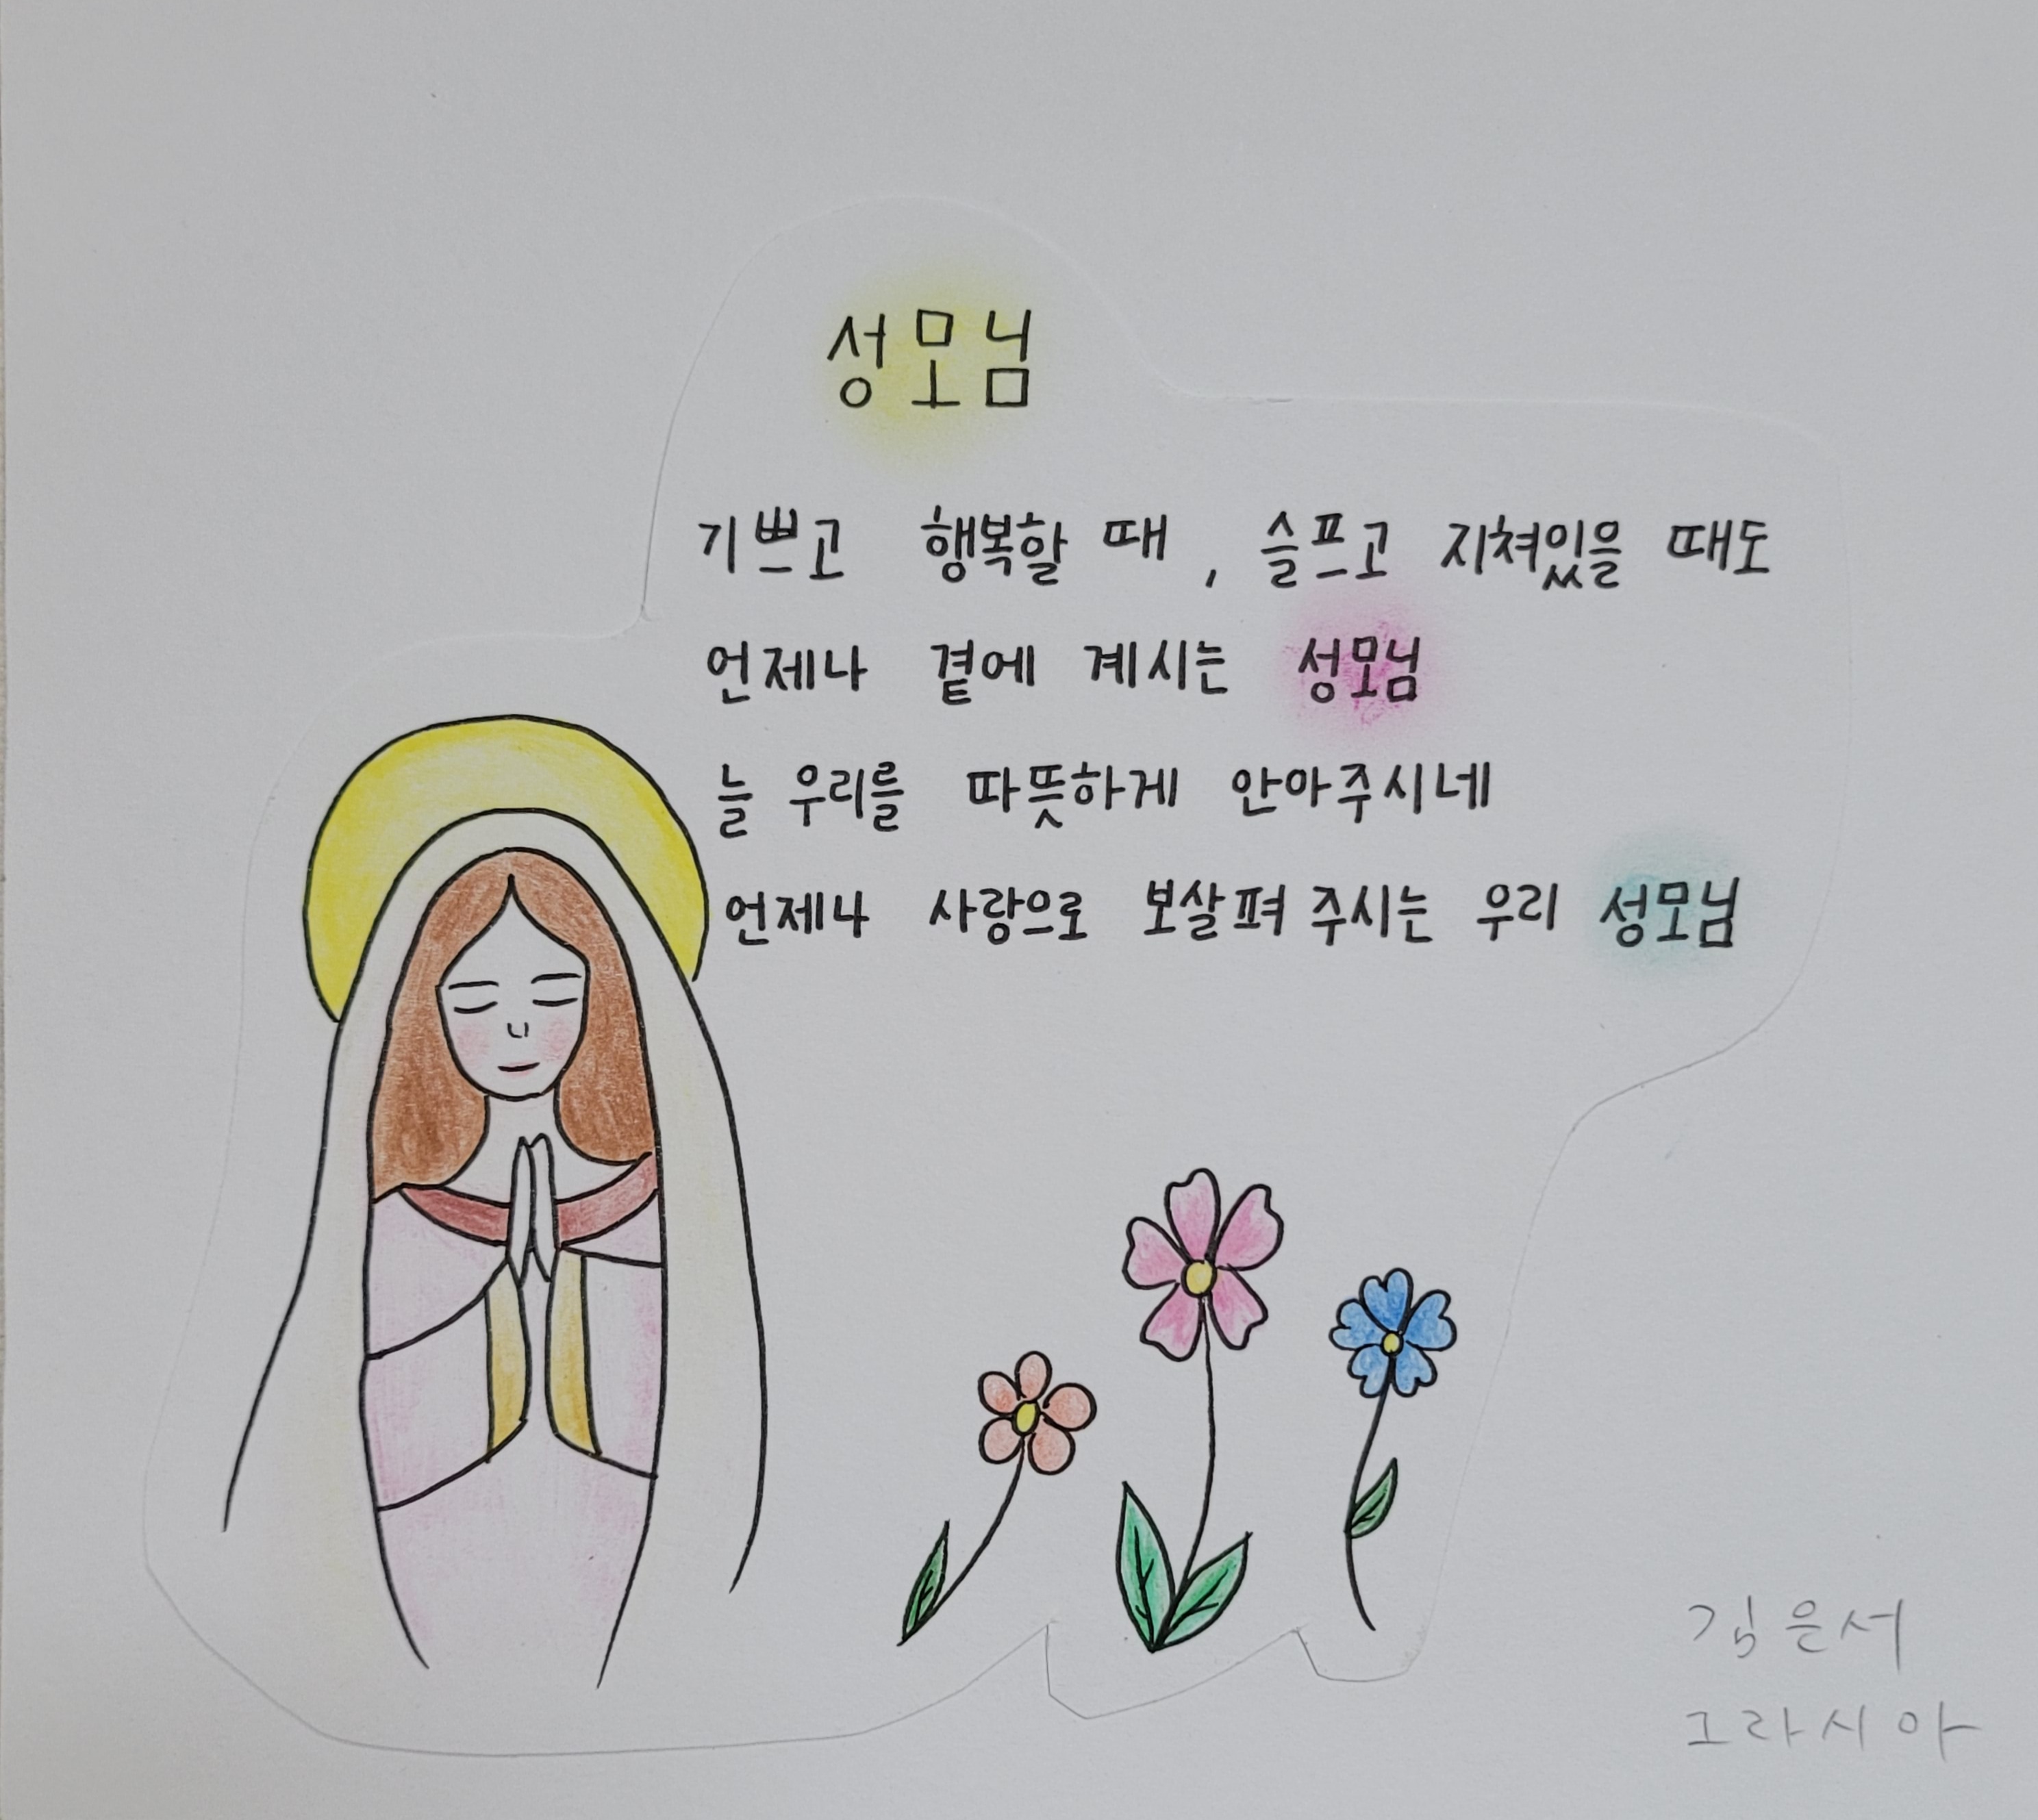 성모님
기쁘고 행복할 때, 슬프고 지쳐있을 때도
언제나 곁에 계시는 성모님
늘 우리를 따뜻하게 안아주시네
언제나 사랑으로 보살펴 주시는 우리 성모님
김은서
그라시아